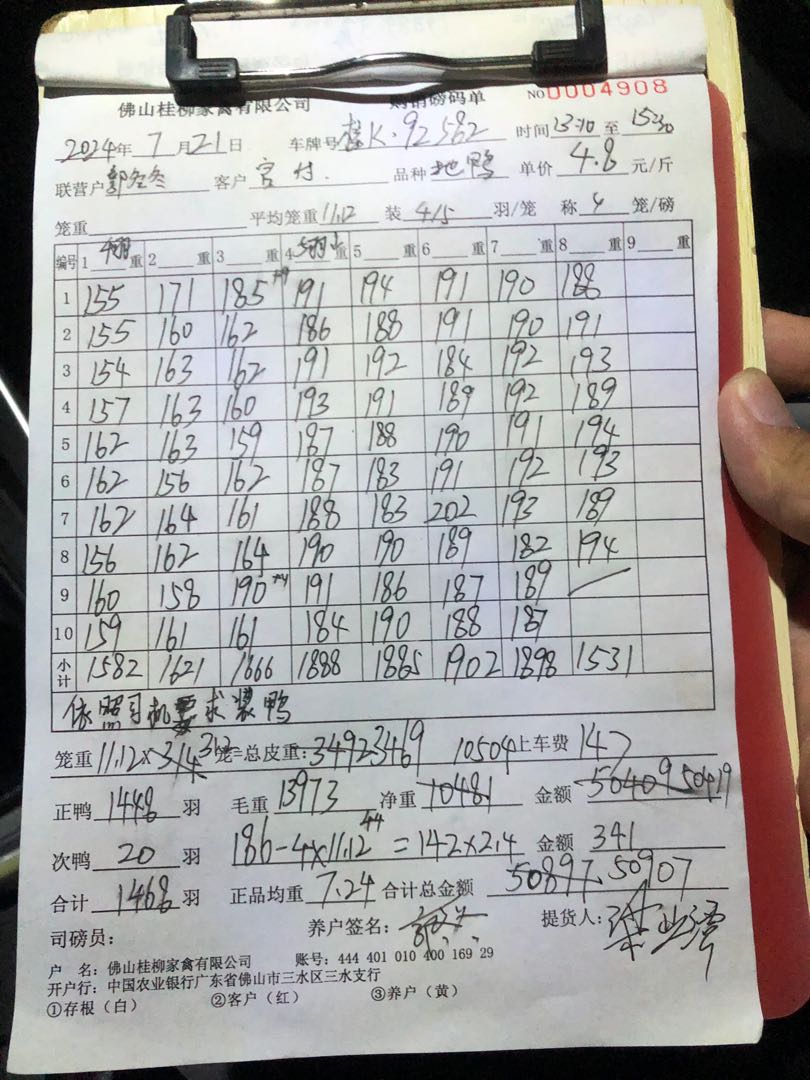 佛山桂柳家禽有限公司 购销磅码单 NO 0004908
2024年 7月21日 车牌号 桂K·92582 时间 13:10 至 15:30
联营户 郭冬冬 客户 官村. 品种 地鸭 单价 4.8 元/斤
笼重 平均笼重 11.12 装 4/5 羽/笼 称 4 笼/磅
编号 1 4羽 重 2 重 3 重 4 5羽 重 5 重 6 重 7 重 8 重 9 重
1 155 171 185 191 194 191 190 188
2 155 160 162 186 188 191 190 191
3 154 163 162 191 192 184 192 193
4 157 163 160 193 191 189 192 189
5 162 163 159 187 188 190 191 194
6 162 156 162 187 183 191 192 193
7 162 164 161 188 183 202 193 189
8 156 162 164 190 190 189 182 194
9 160 158 190 191 186 187 189
10 159 161 161 184 190 188 187
小计 1582 1621 1666 1888 1885 1902 1898 1531
依照司机要求装鸭
笼重 11.12×314 312 笼=总皮重: 3492 3469 10504 上车费 147
正鸭 1448 羽 毛重 13973 净重 10481 金额 50409 50419
次鸭 20 羽 186-4×11.12 44 =142×2.4 金额 341
合计 1468 羽 正品均重 7.24 合计总金额 50897. 50907
司磅员: 养户签名: 提货人:
户 名: 佛山桂柳家禽有限公司 账号: 444 401 010 400 169 29
开户行: 中国农业银行广东省佛山市三水区三水支行
①存根（白） ②客户（红） ③养户（黄）